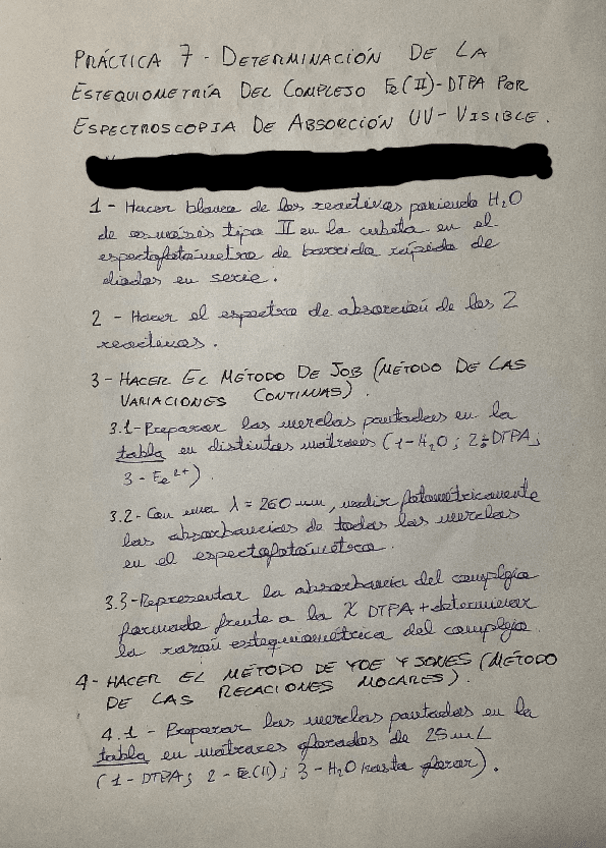 PRÁCTICA 7 - DETERMINACIÓN DE LA
ESTEQUIOMETRÍA DEL COMPLEJO Fe(II)-DTPA POR
ESPECTROSCOPIA DE ABSORCIÓN UV-VISIBLE.
1 - Hacer blanco de los reactivos poniendo H₂O
de osmosis tipo II en la cubeta en el
espectofotómetro de barrido rápido de
diodos en serie.
2 - Hacer el espectro de absorción de los 2
reactivos.
3 - HACER EL MÉTODO DE JOB (MÉTODO DE LAS
VARIACIONES CONTINUAS).
3.1- Preparar las mezclas pautadas en la
tabla en distintos matraces (1-H₂O; 2 DTPA;
3 - Fe²⁺).
3.2- Con una λ = 260 nm, medir fotométricamente
las absorbancias de todas las mezclas
en el espectofotómetro.
3.3- Representar la absorbancia del complejo
formado frente a la X DTPA + determinar
la razón estequiométrica del complejo
4 - HACER EL MÉTODO DE YOE Y JONES (MÉTODO
DE LAS RELACIONES MOLARES).
4.1 - Preparar las mezclas pautadas en la
tabla en matraces aforados de 25 mL
(1 - DTPA; 2 - Fe(II); 3 - H₂O hasta aforar).